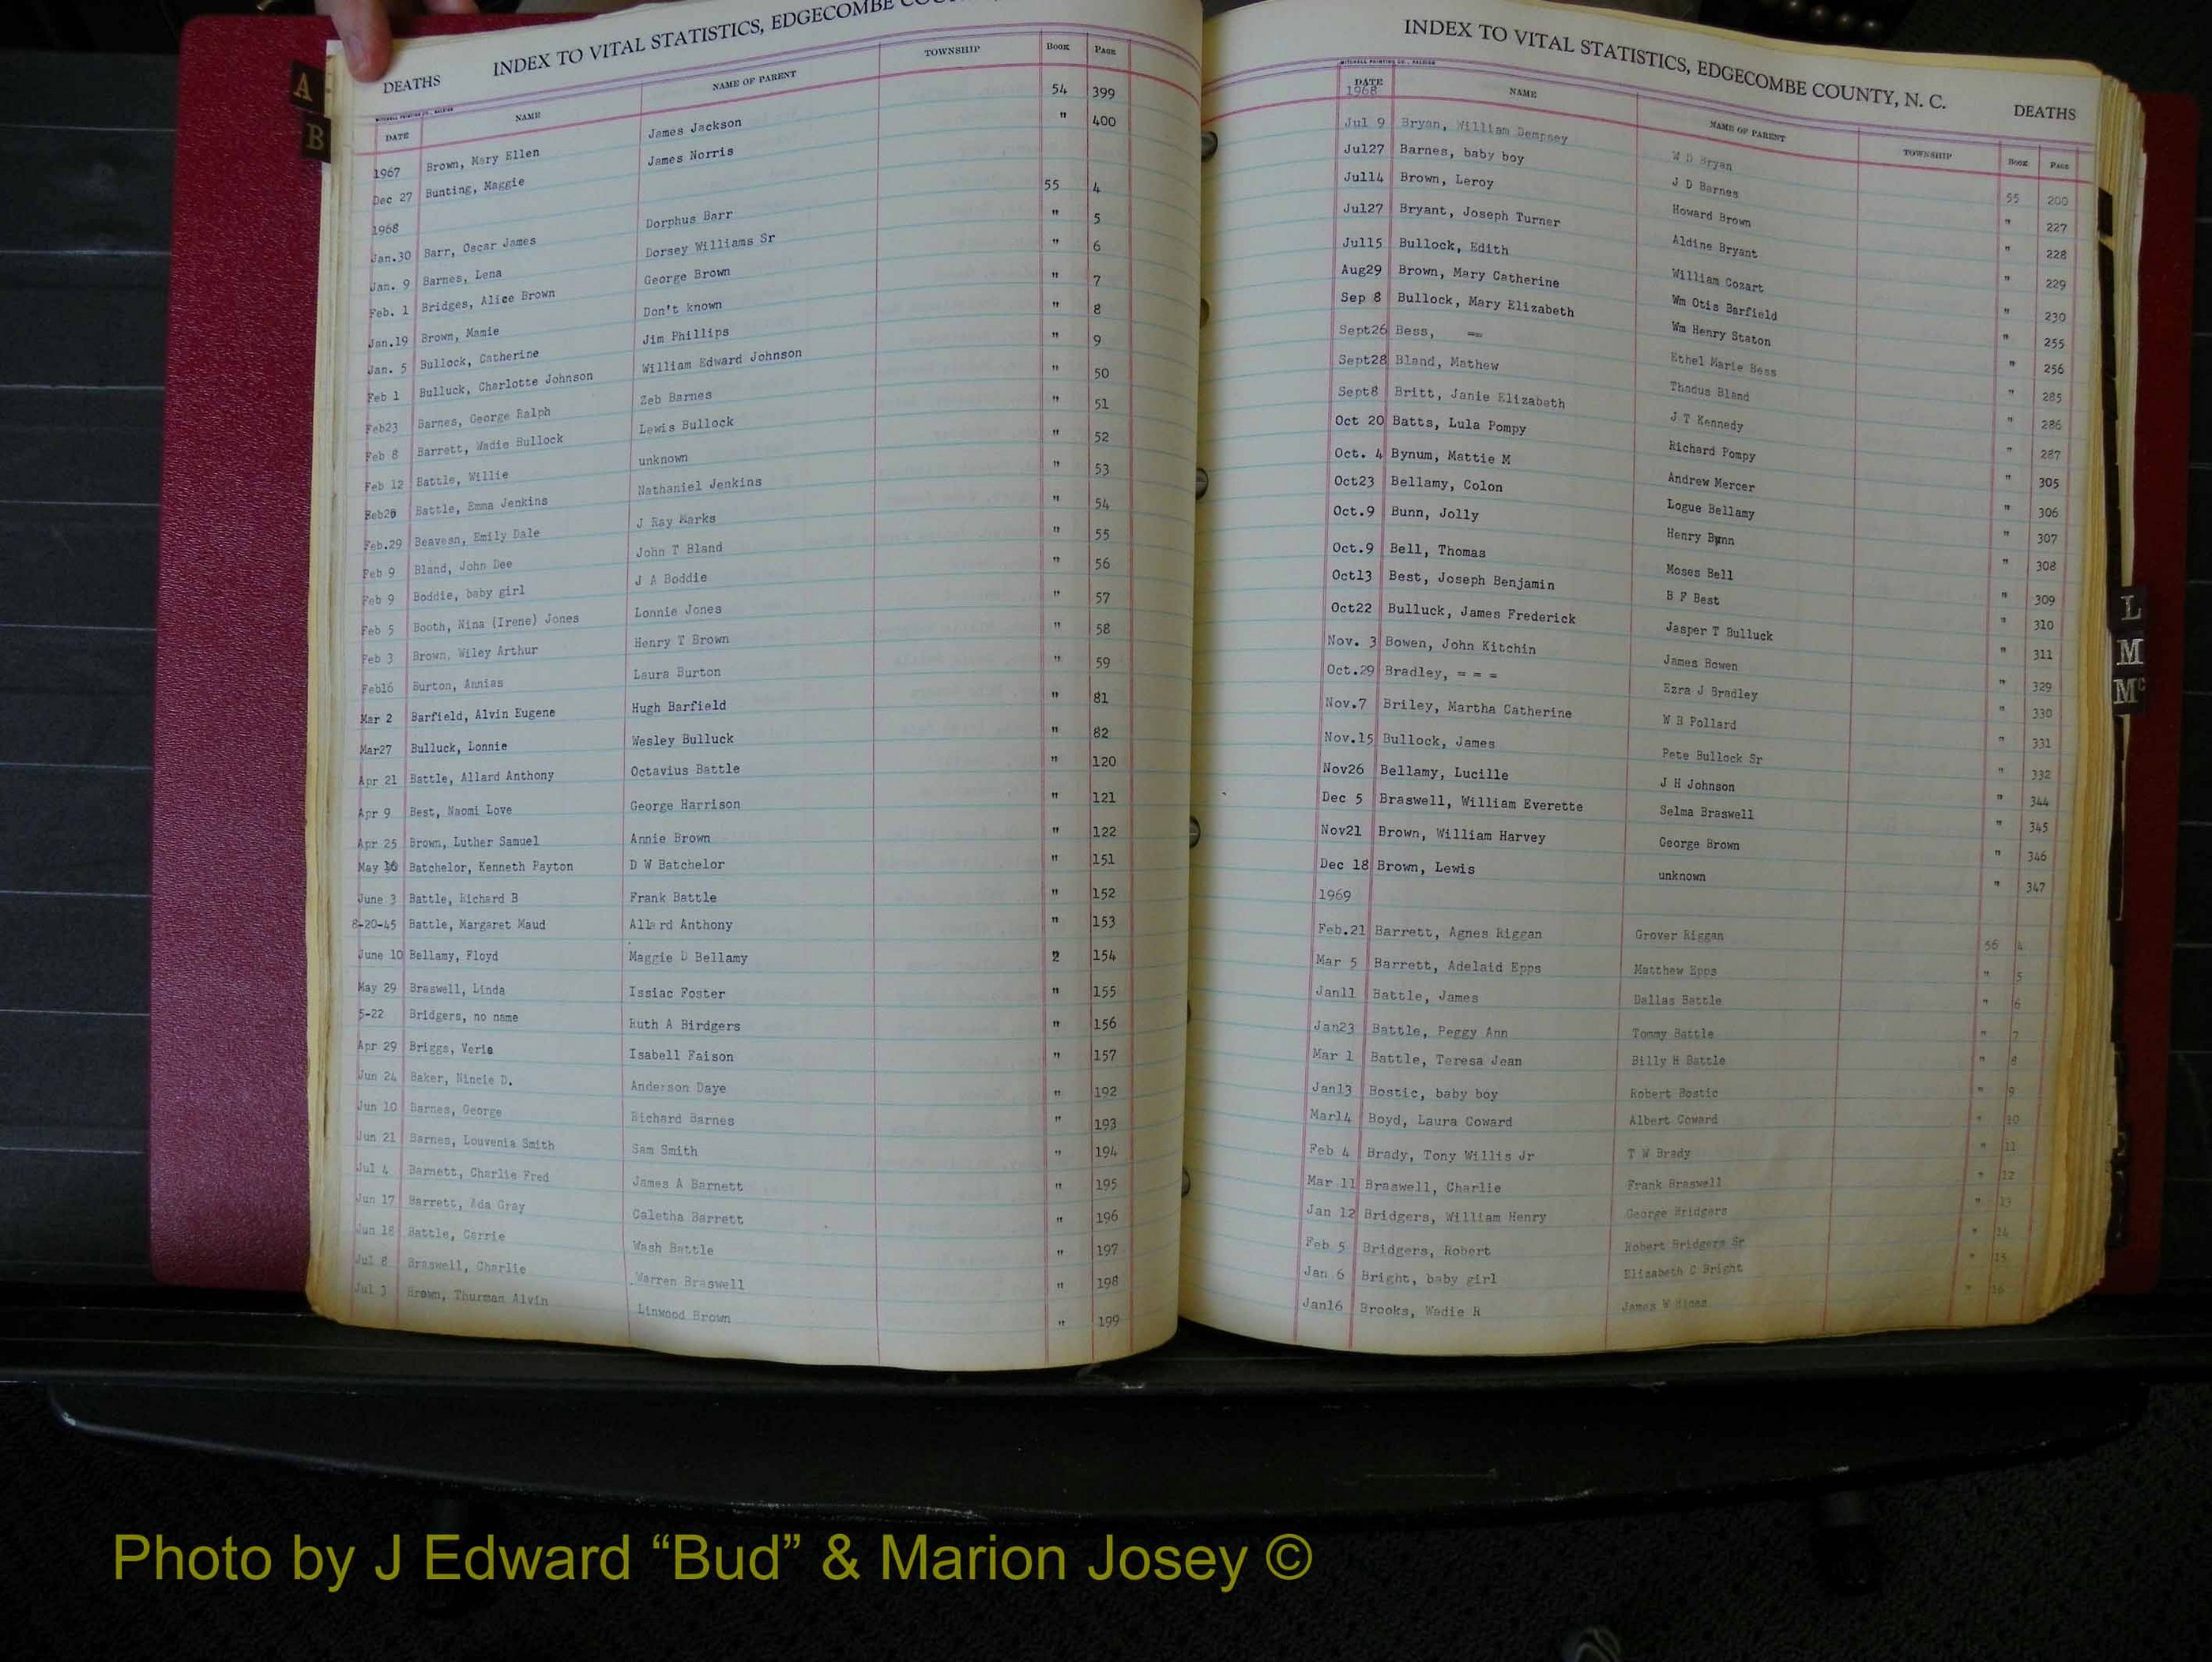 A
B
DEATHS INDEX TO VITAL STATISTICS, EDGECOMBE
MITCHELL PRINTING CO., RALEIGH
DATE NAME NAME OF PARENT TOWNSHIP BOOK PAGE
1967 Brown, Mary Ellen James Jackson 54 399
Dec 27 Bunting, Maggie James Norris " 400
1968
Jan.30 Barr, Oscar James Dorphus Barr 55 4
Jan. 9 Barnes, Lena Dorsey Williams Sr " 5
Feb. 1 Bridges, Alice Brown George Brown " 6
Jan.19 Brown, Mamie Don't known " 7
Jan. 5 Bullock, Catherine Jim Phillips " 8
Feb 1 Bulluck, Charlotte Johnson William Edward Johnson " 9
Feb23 Barnes, George Ralph Zeb Barnes " 50
Feb 8 Barrett, Wadie Bullock Lewis Bullock " 51
Feb 12 Battle, Willie unknown " 52
Feb20 Battle, Emma Jenkins Nathaniel Jenkins " 53
Feb.29 Beavesn, Emily Dale J Ray Marks " 54
Feb 9 Bland, John Dee John T Bland " 55
Feb 9 Boddie, baby girl J A Boddie " 56
Feb 5 Booth, Nina (Irene) Jones Lonnie Jones " 57
Feb 3 Brown, Wiley Arthur Henry T Brown " 58
Feb16 Burton, Annias Laura Burton " 59
Mar 2 Barfield, Alvin Eugene Hugh Barfield " 81
Mar27 Bulluck, Lonnie Wesley Bulluck " 82
Apr 21 Battle, Allard Anthony Octavius Battle " 120
Apr 9 Best, Naomi Love George Harrison " 121
Apr 25 Brown, Luther Samuel Annie Brown " 122
May Batchelor, Kenneth Payton D W Batchelor " 151
June 3 Battle, Richard B Frank Battle " 152
8-20-45 Battle, Margaret Maud Allard Anthony " 153
June 10 Bellamy, Floyd Maggie D Bellamy 2 154
May 29 Braswell, Linda Issiac Foster " 155
5-22 Bridgers, no name Ruth A Birdgers " 156
Apr 29 Briggs, Verie Isabell Faison " 157
Jun 24 Baker, Nincie D. Anderson Daye " 192
Jun 10 Barnes, George Richard Barnes " 193
Jun 21 Barnes, Louvenia Smith Sam Smith " 194
Jul 4 Barnett, Charlie Fred James A Barnett " 195
Jun 17 Barrett, Ada Gray Caletha Barrett " 196
Jun 18 Battle, Carrie Wash Battle " 197
Jul 8 Braswell, Charlie Warren Braswell " 198
Jul 3 Brown, Thurman Alvin Linwood Brown " 199
INDEX TO VITAL STATISTICS, EDGECOMBE COUNTY, N. C. DEATHS
MITCHELL PRINTING CO., RALEIGH
DATE NAME NAME OF PARENT TOWNSHIP BOOK PAGE
1968
Jul 9 Bryan, William Dempsey W D Bryan 55 200
Jul27 Barnes, baby boy J D Barnes " 227
Jul14 Brown, Leroy Howard Brown " 228
Jul27 Bryant, Joseph Turner Aldine Bryant " 229
Jul15 Bullock, Edith William Cozart " 230
Aug29 Brown, Mary Catherine Wm Otis Barfield " 255
Sep 8 Bullock, Mary Elizabeth Wm Henry Staton " 256
Sept26 Bess, == Ethel Marie Bess " 285
Sept28 Bland, Mathew Thadus Bland " 286
Sept8 Britt, Janie Elizabeth J T Kennedy " 287
Oct 20 Batts, Lula Pompy Richard Pompy " 305
Oct. 4 Bynum, Mattie M Andrew Mercer " 306
Oct23 Bellamy, Colon Logue Bellamy " 307
Oct.9 Bunn, Jolly Henry Bunn " 308
Oct.9 Bell, Thomas Moses Bell " 309
Oct13 Best, Joseph Benjamin B F Best " 310
Oct22 Bulluck, James Frederick Jasper T Bulluck " 311
Nov. 3 Bowen, John Kitchin James Bowen " 329
Oct.29 Bradley, = = = Ezra J Bradley " 330
Nov.7 Briley, Martha Catherine W B Pollard " 331
Nov.15 Bullock, James Pete Bullock Sr " 332
Nov26 Bellamy, Lucille J H Johnson " 344
Dec 5 Braswell, William Everette Selma Braswell " 345
Nov21 Brown, William Harvey George Brown " 346
Dec 18 Brown, Lewis unknown " 347
1969
Feb.21 Barrett, Agnes Riggan Grover Riggan 56 4
Mar 5 Barrett, Adelaid Epps Matthew Epps " 5
Jan11 Battle, James Dallas Battle " 6
Jan23 Battle, Peggy Ann Tommy Battle " 7
Mar 1 Battle, Teresa Jean Billy H Battle " 8
Jan13 Bostic, baby boy Robert Bostic " 9
Mar14 Boyd, Laura Coward Albert Coward " 10
Feb 4 Brady, Tony Willis Jr T W Brady " 11
Mar 11 Braswell, Charlie Frank Braswell " 12
Jan 12 Bridgers, William Henry George Bridgers " 13
Feb 5 Bridgers, Robert Robert Bridgers Sr " 14
Jan 6 Bright, baby girl Elizabeth C Bright " 15
Jan16 Brooks, Wadie R James W Hines " 16
L
M
Mc
Photo by J Edward “Bud” & Marion Josey ©